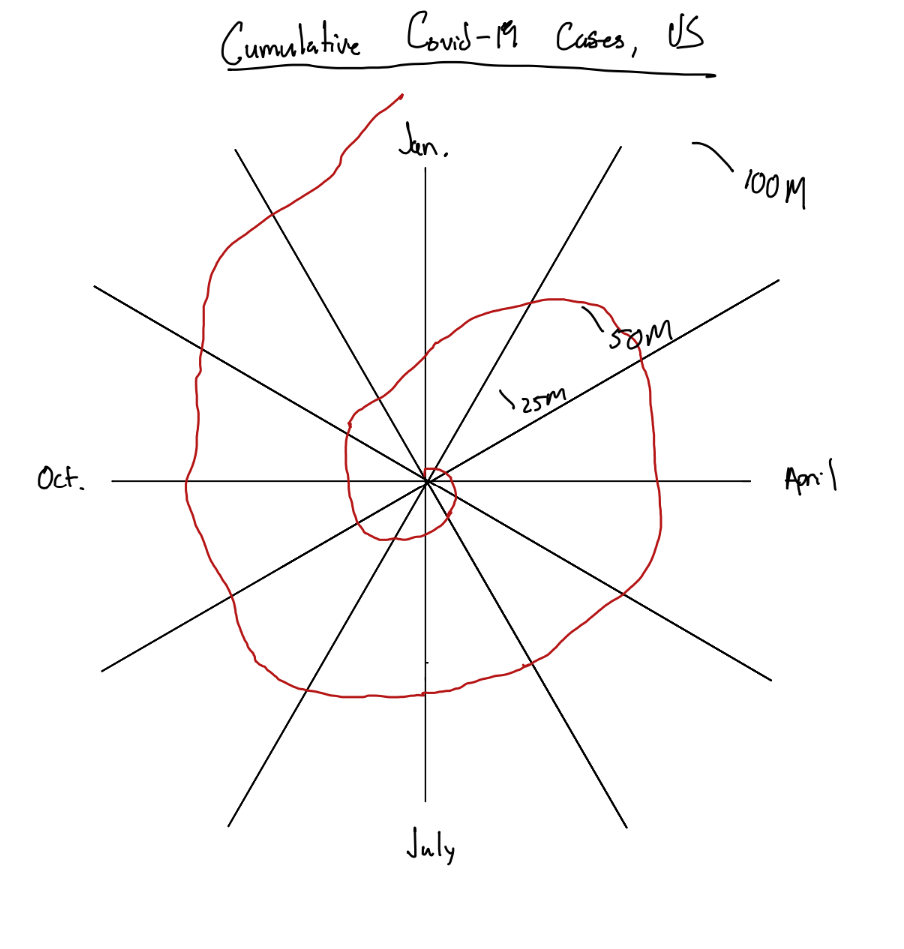 Cumulative Covid-19 Cases, US
Jan.
100M
50M
25M
Oct.
April
July